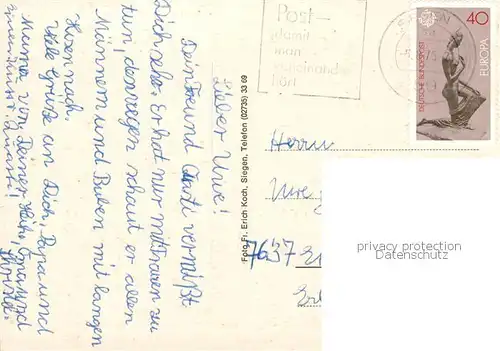 Lieber Uwe!
Dein Freund Quasti vermißt
Dich sehr. Er hat nur mit Frauen zu
tun, deswegen schaut er allen
Männern und Buben mit langen
Hosen nach.
Viele Grüße an Dich, Papa und
Mama von Deiner Heike, Opa und
Quasti!
Foto Fr. Erich Koch, Siegen, Telefon (02735) 33 69
Post-
damit
man
voneinander
hört
40
EUROPA
DEUTSCHE BUNDESPOST
Herrn
Uwe
7637
privacy protection
Datenschutz